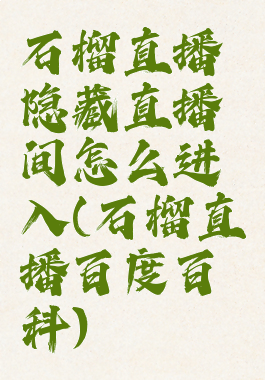 石榴直播
隐藏直播
间怎么进
入(石榴直
播百度百
科)